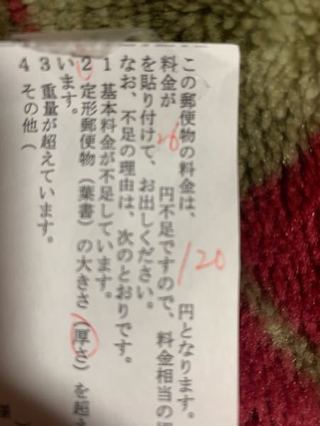 この郵便物の料金は、120円となります。
料金が26円不足ですので、料金相当の
を貼り付けて、お出しください。
なお、不足の理由は、次のとおりです。
1 基本料金が不足しています。
2 定形郵便物(葉書)の大きさ(厚さ)を超え
います。
3 重量が超えています。
4 その他(
様